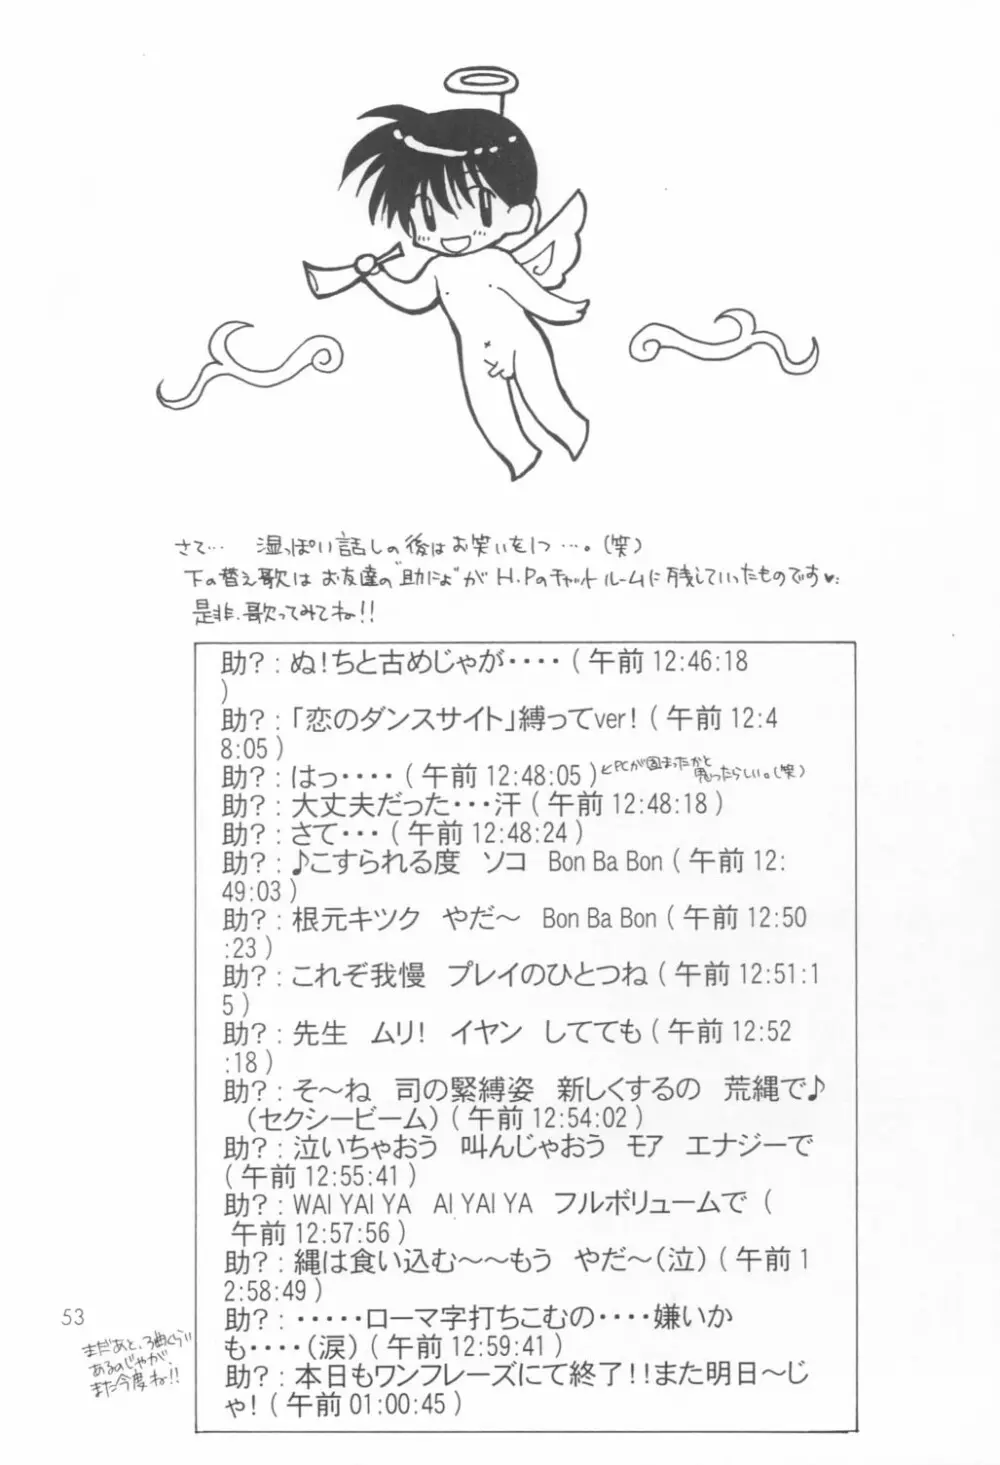 さて… 湿っぽい話しの後はお笑いを1つ…。(笑)
下の替え歌は お友達の"助にょ"が H.Pのチャットルームに残していったものです♥:
是非、歌ってみてね!!
助?:ぬ!ちと古めじゃが････(午前12:46:18
)
助?:「恋のダンスサイト」縛ってver!(午前12:4
8:05)
助?:はっ････(午前12:48:05)←PCが固まったかと
思ったらしい。(笑)
助?:大丈夫だった･･･汗(午前12:48:18)
助?:さて･･･(午前12:48:24)
助?:♪こすられる度 ソコ Bon Ba Bon(午前12:
49:03)
助?:根元キツク やだ～ Bon Ba Bon(午前12:50
:23)
助?:これぞ我慢 プレイのひとつね(午前12:51:1
5)
助?:先生 ムリ! イヤン してても(午前12:52
:18)
助?:そ～ね 司の緊縛姿 新しくするの 荒縄で♪
(セクシービーム)(午前12:54:02)
助?:泣いちゃおう 叫んじゃおう モア エナジーで
(午前12:55:41)
助?:WAI YAI YA AI YAI YA フルボリュームで (
午前12:57:56)
助?:縄は食い込む～～もう やだ～(泣)(午前1
2:58:49)
助?:･････ローマ字打ちこむの････嫌いか
も････(涙)(午前12:59:41)
助?:本日もワンフレーズにて終了!!また明日～じ
ゃ!(午前01:00:45)
53
まだあと、3曲くらい
あるのじゃが、
また今度ね!!